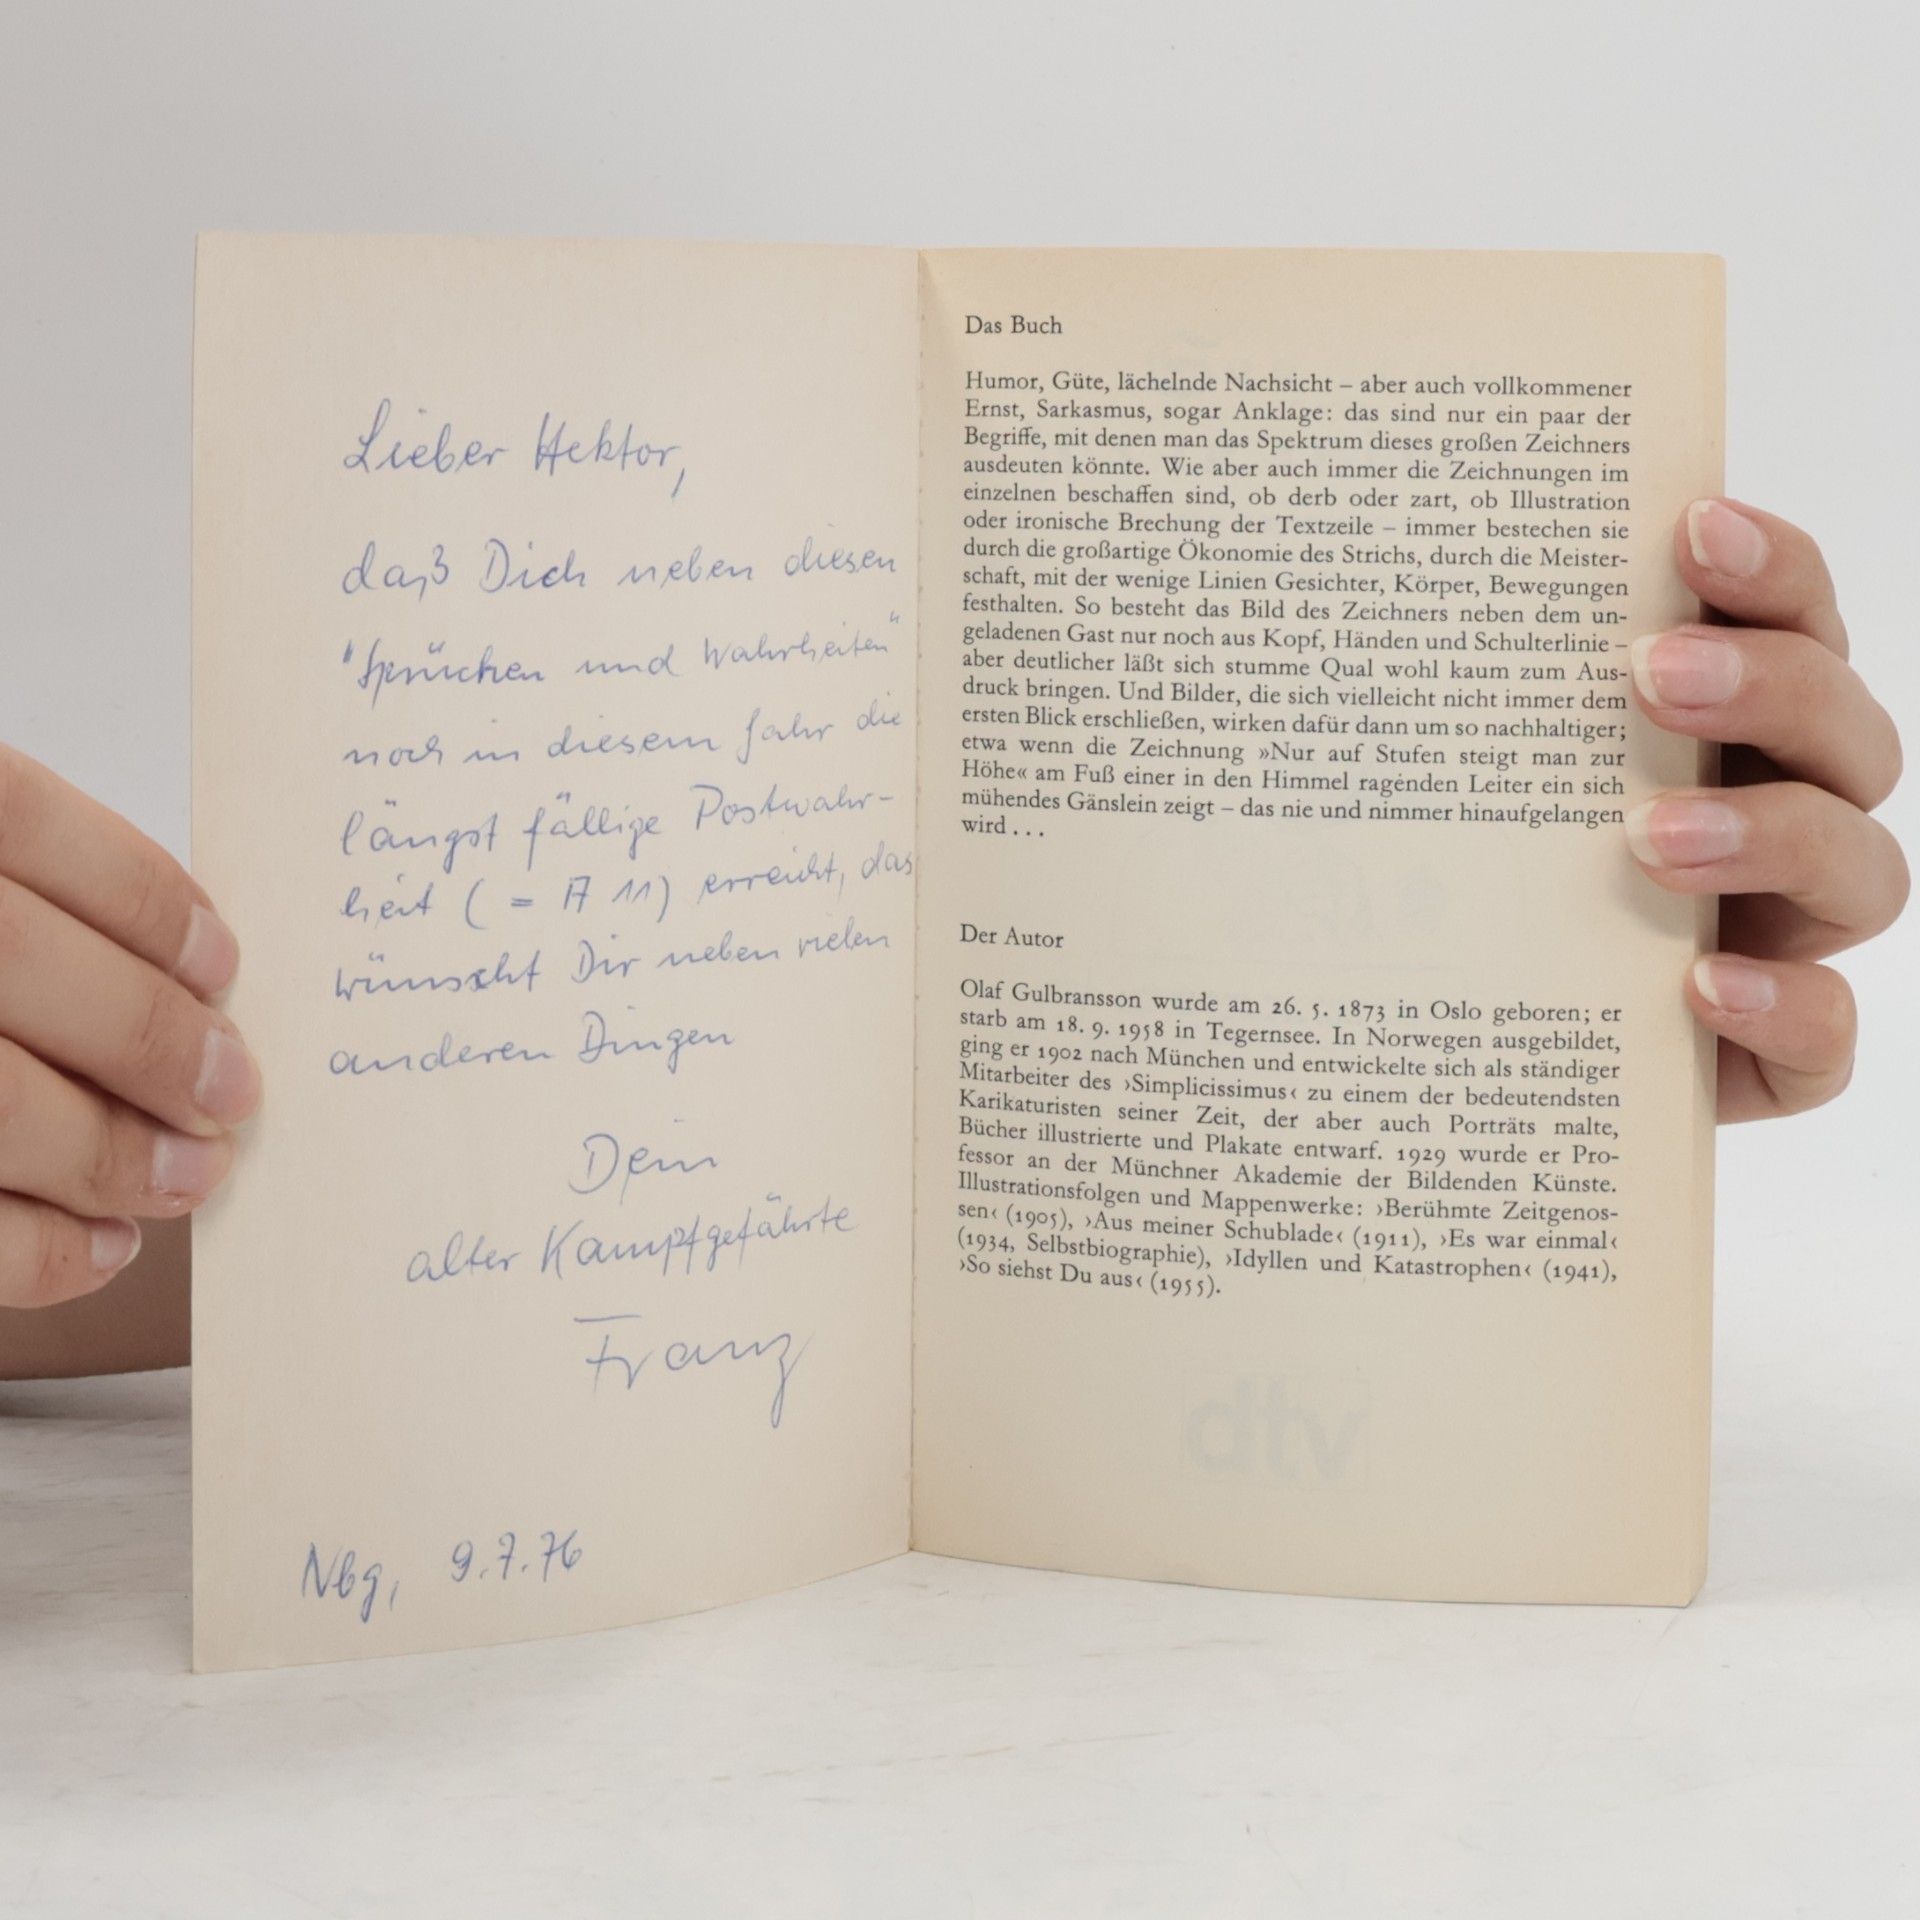 Lieber Hektor,
daß Dich neben diesen
"Sprüchen und Wahrheiten"
noch in diesem Jahr die
längst fällige Postwahr-
heit (= A 11) erreicht, das
wünscht Dir neben vielen
anderen Dingen
Dein
alter Kampfgefährte
Franz
Nbg, 9.7.76
Das Buch
Humor, Güte, lächelnde Nachsicht – aber auch vollkommener
Ernst, Sarkasmus, sogar Anklage: das sind nur ein paar der
Begriffe, mit denen man das Spektrum dieses großen Zeichners
ausdeuten könnte. Wie aber auch immer die Zeichnungen im
einzelnen beschaffen sind, ob derb oder zart, ob Illustration
oder ironische Brechung der Textzeile – immer bestechen sie
durch die großartige Ökonomie des Strichs, durch die Meister-
schaft, mit der wenige Linien Gesichter, Körper, Bewegungen
festhalten. So besteht das Bild des Zeichners neben dem un-
geladenen Gast nur noch aus Kopf, Händen und Schulterlinie –
aber deutlicher läßt sich stumme Qual wohl kaum zum Aus-
druck bringen. Und Bilder, die sich vielleicht nicht immer dem
ersten Blick erschließen, wirken dafür dann um so nachhaltiger;
etwa wenn die Zeichnung »Nur auf Stufen steigt man zur
Höhe« am Fuß einer in den Himmel ragenden Leiter ein sich
mühendes Gänslein zeigt – das nie und nimmer hinaufgelangen
wird . . .
Der Autor
Olaf Gulbransson wurde am 26. 5. 1873 in Oslo geboren; er
starb am 18. 9. 1958 in Tegernsee. In Norwegen ausgebildet,
ging er 1902 nach München und entwickelte sich als ständiger
Mitarbeiter des ›Simplicissimus‹ zu einem der bedeutendsten
Karikaturisten seiner Zeit, der aber auch Porträts malte,
Bücher illustrierte und Plakate entwarf. 1929 wurde er Pro-
fessor an der Münchner Akademie der Bildenden Künste.
Illustrationsfolgen und Mappenwerke: ›Berühmte Zeitgenos-
sen‹ (1905), ›Aus meiner Schublade‹ (1911), ›Es war einmal‹
(1934, Selbstbiographie), ›Idyllen und Katastrophen‹ (1941),
›So siehst Du aus‹ (1955).